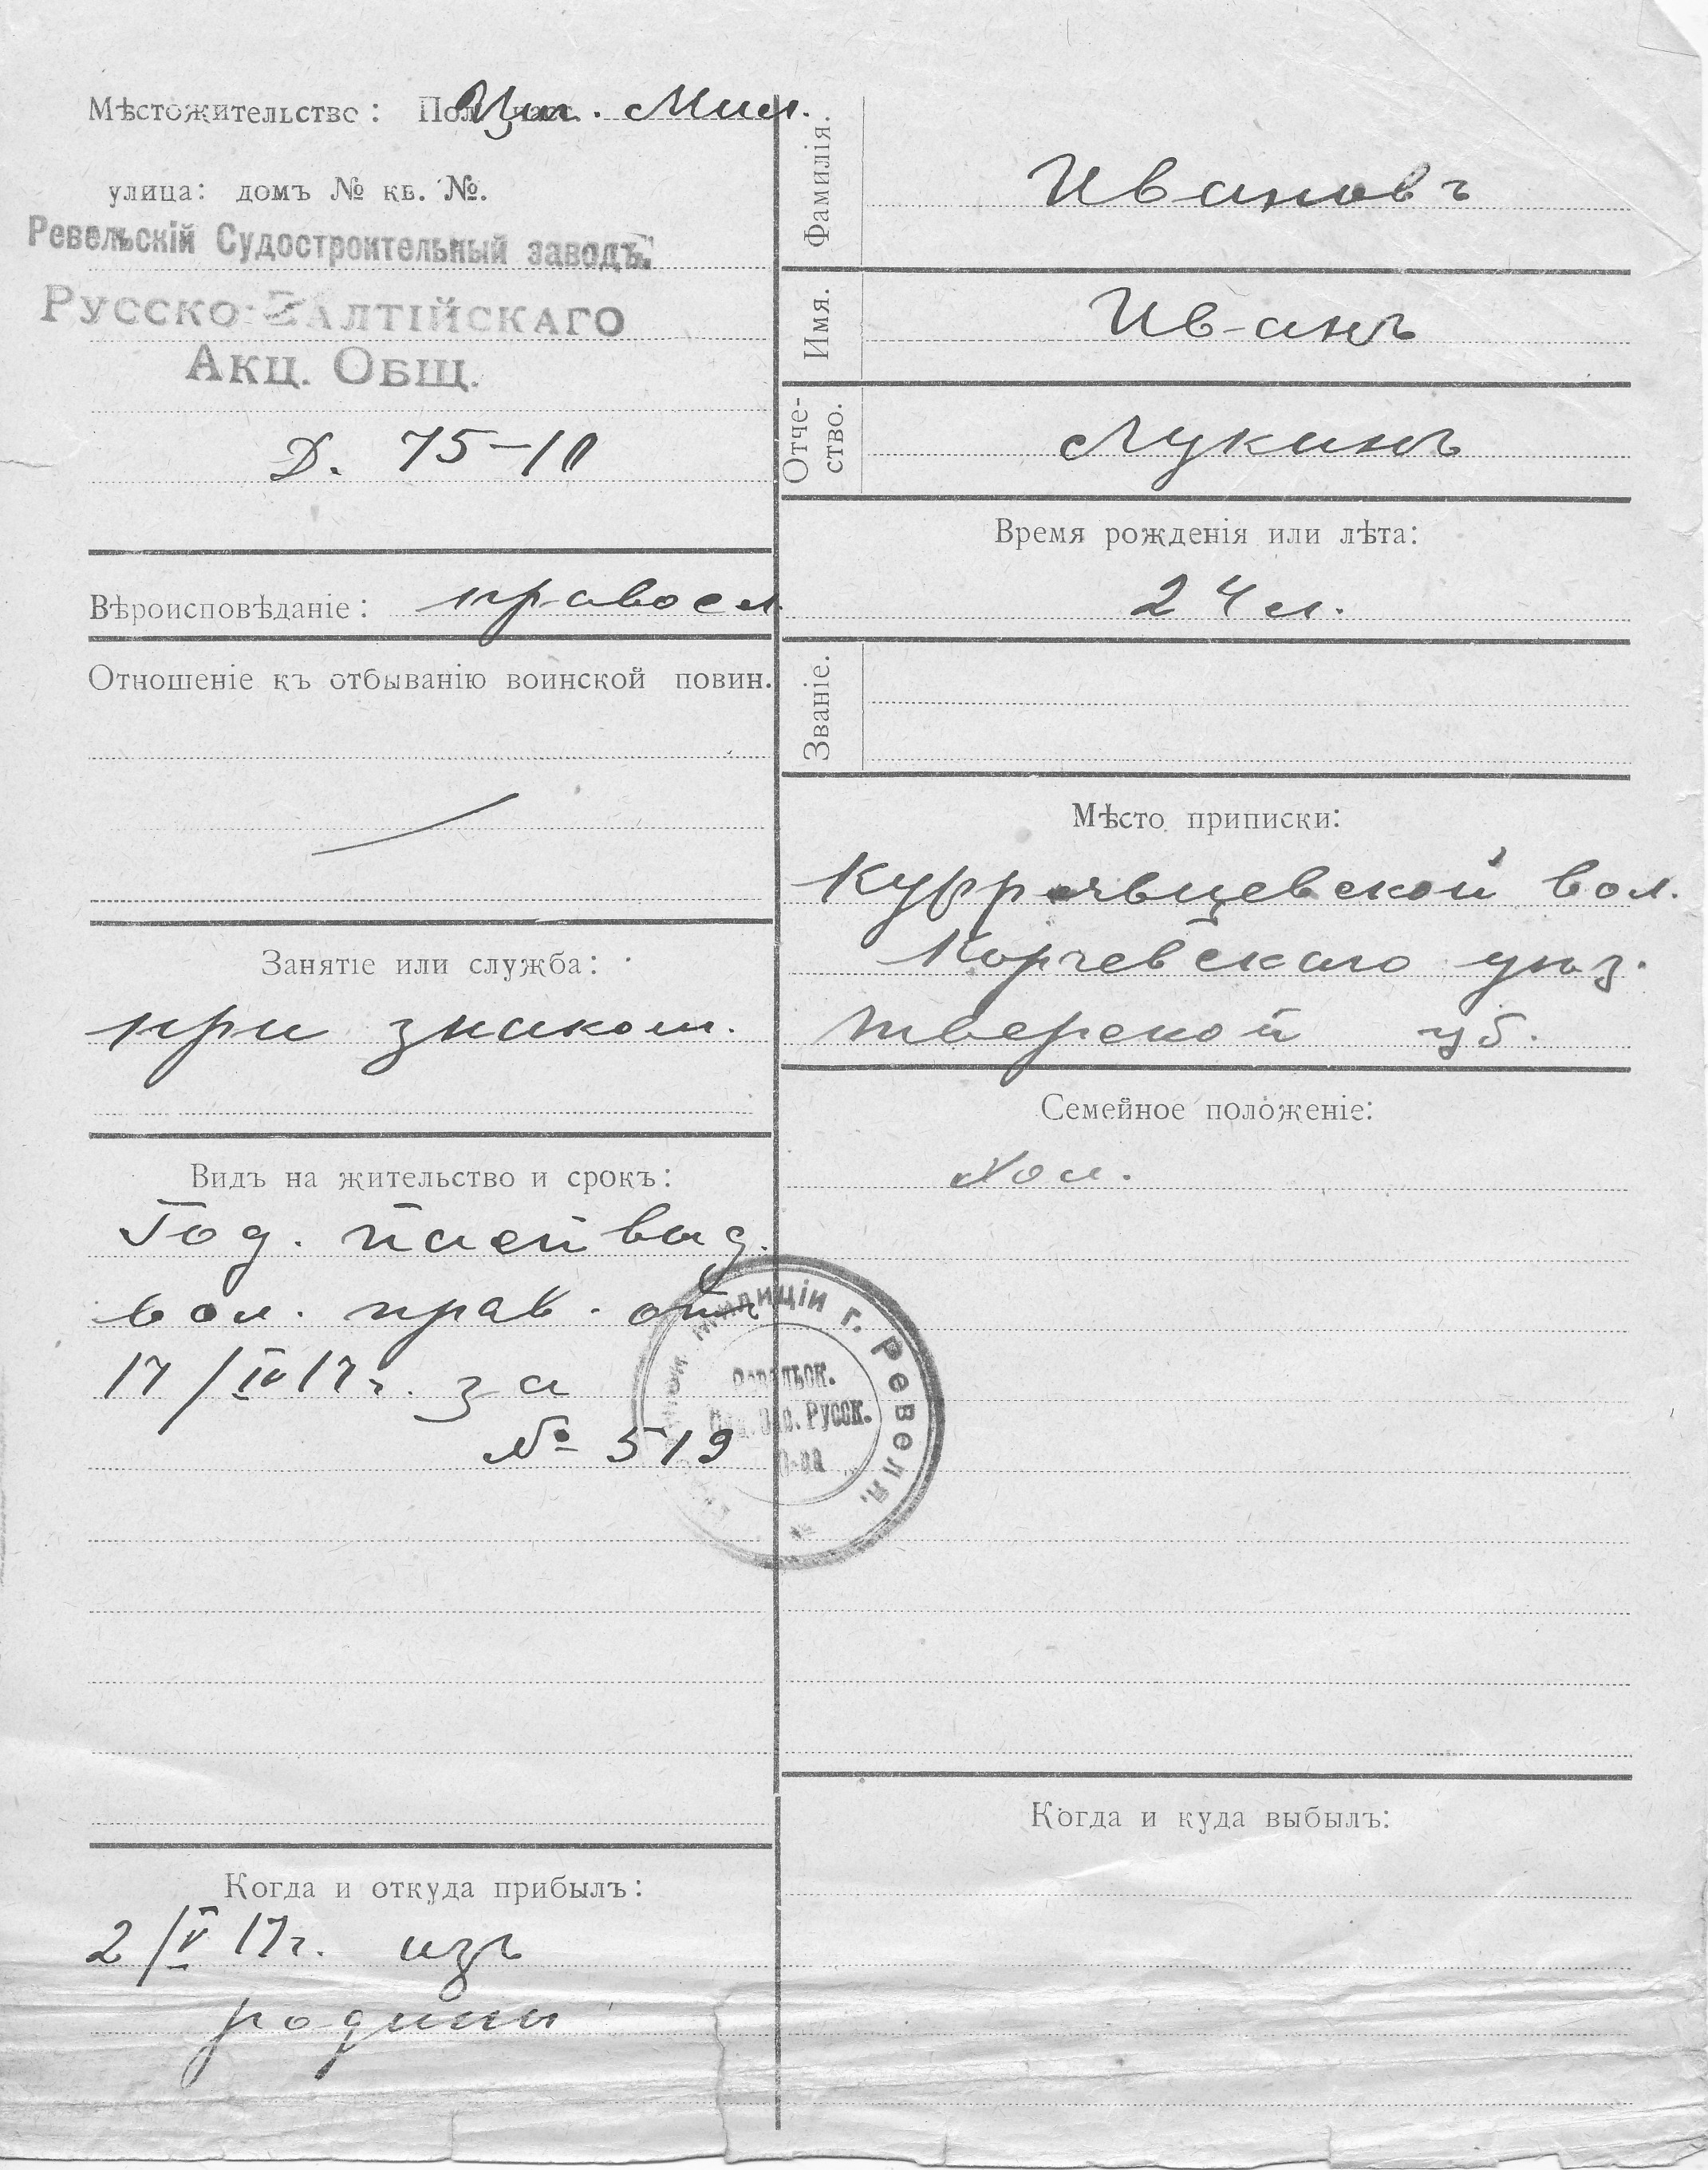 Мѣстожительство: Пол. Уч. Мил.
улица: домъ № кв. №.
Ревельскій Судостроительный заводъ.
Русско-Балтійскаго
Акц. Общ.
Д. 75-10
Вѣроисповѣданіе: правосл.
Отношеніе къ отбыванію воинской повин.
Занятіе или служба:
при знаком.
Видъ на жительство и срокъ:
Год. выд.
вол. прав. отъ
17/IV 17 г. за
№ 519
Когда и откуда прибылъ:
2/V 17г. изъ
родины
Фамилія.
Ивановъ
Имя.
Иванъ
Отче-
ство.
Лукинъ
Время рожденія или лѣта:
24 л.
Званіе.
Мѣсто приписки:
вол.
Корчевскаго уѣз.
Тверской губ.
Семейное положеніе:
Хол.
милиціи г. Ревеля.
Ревельск.
Русск.
О-ва
Когда и куда выбылъ: